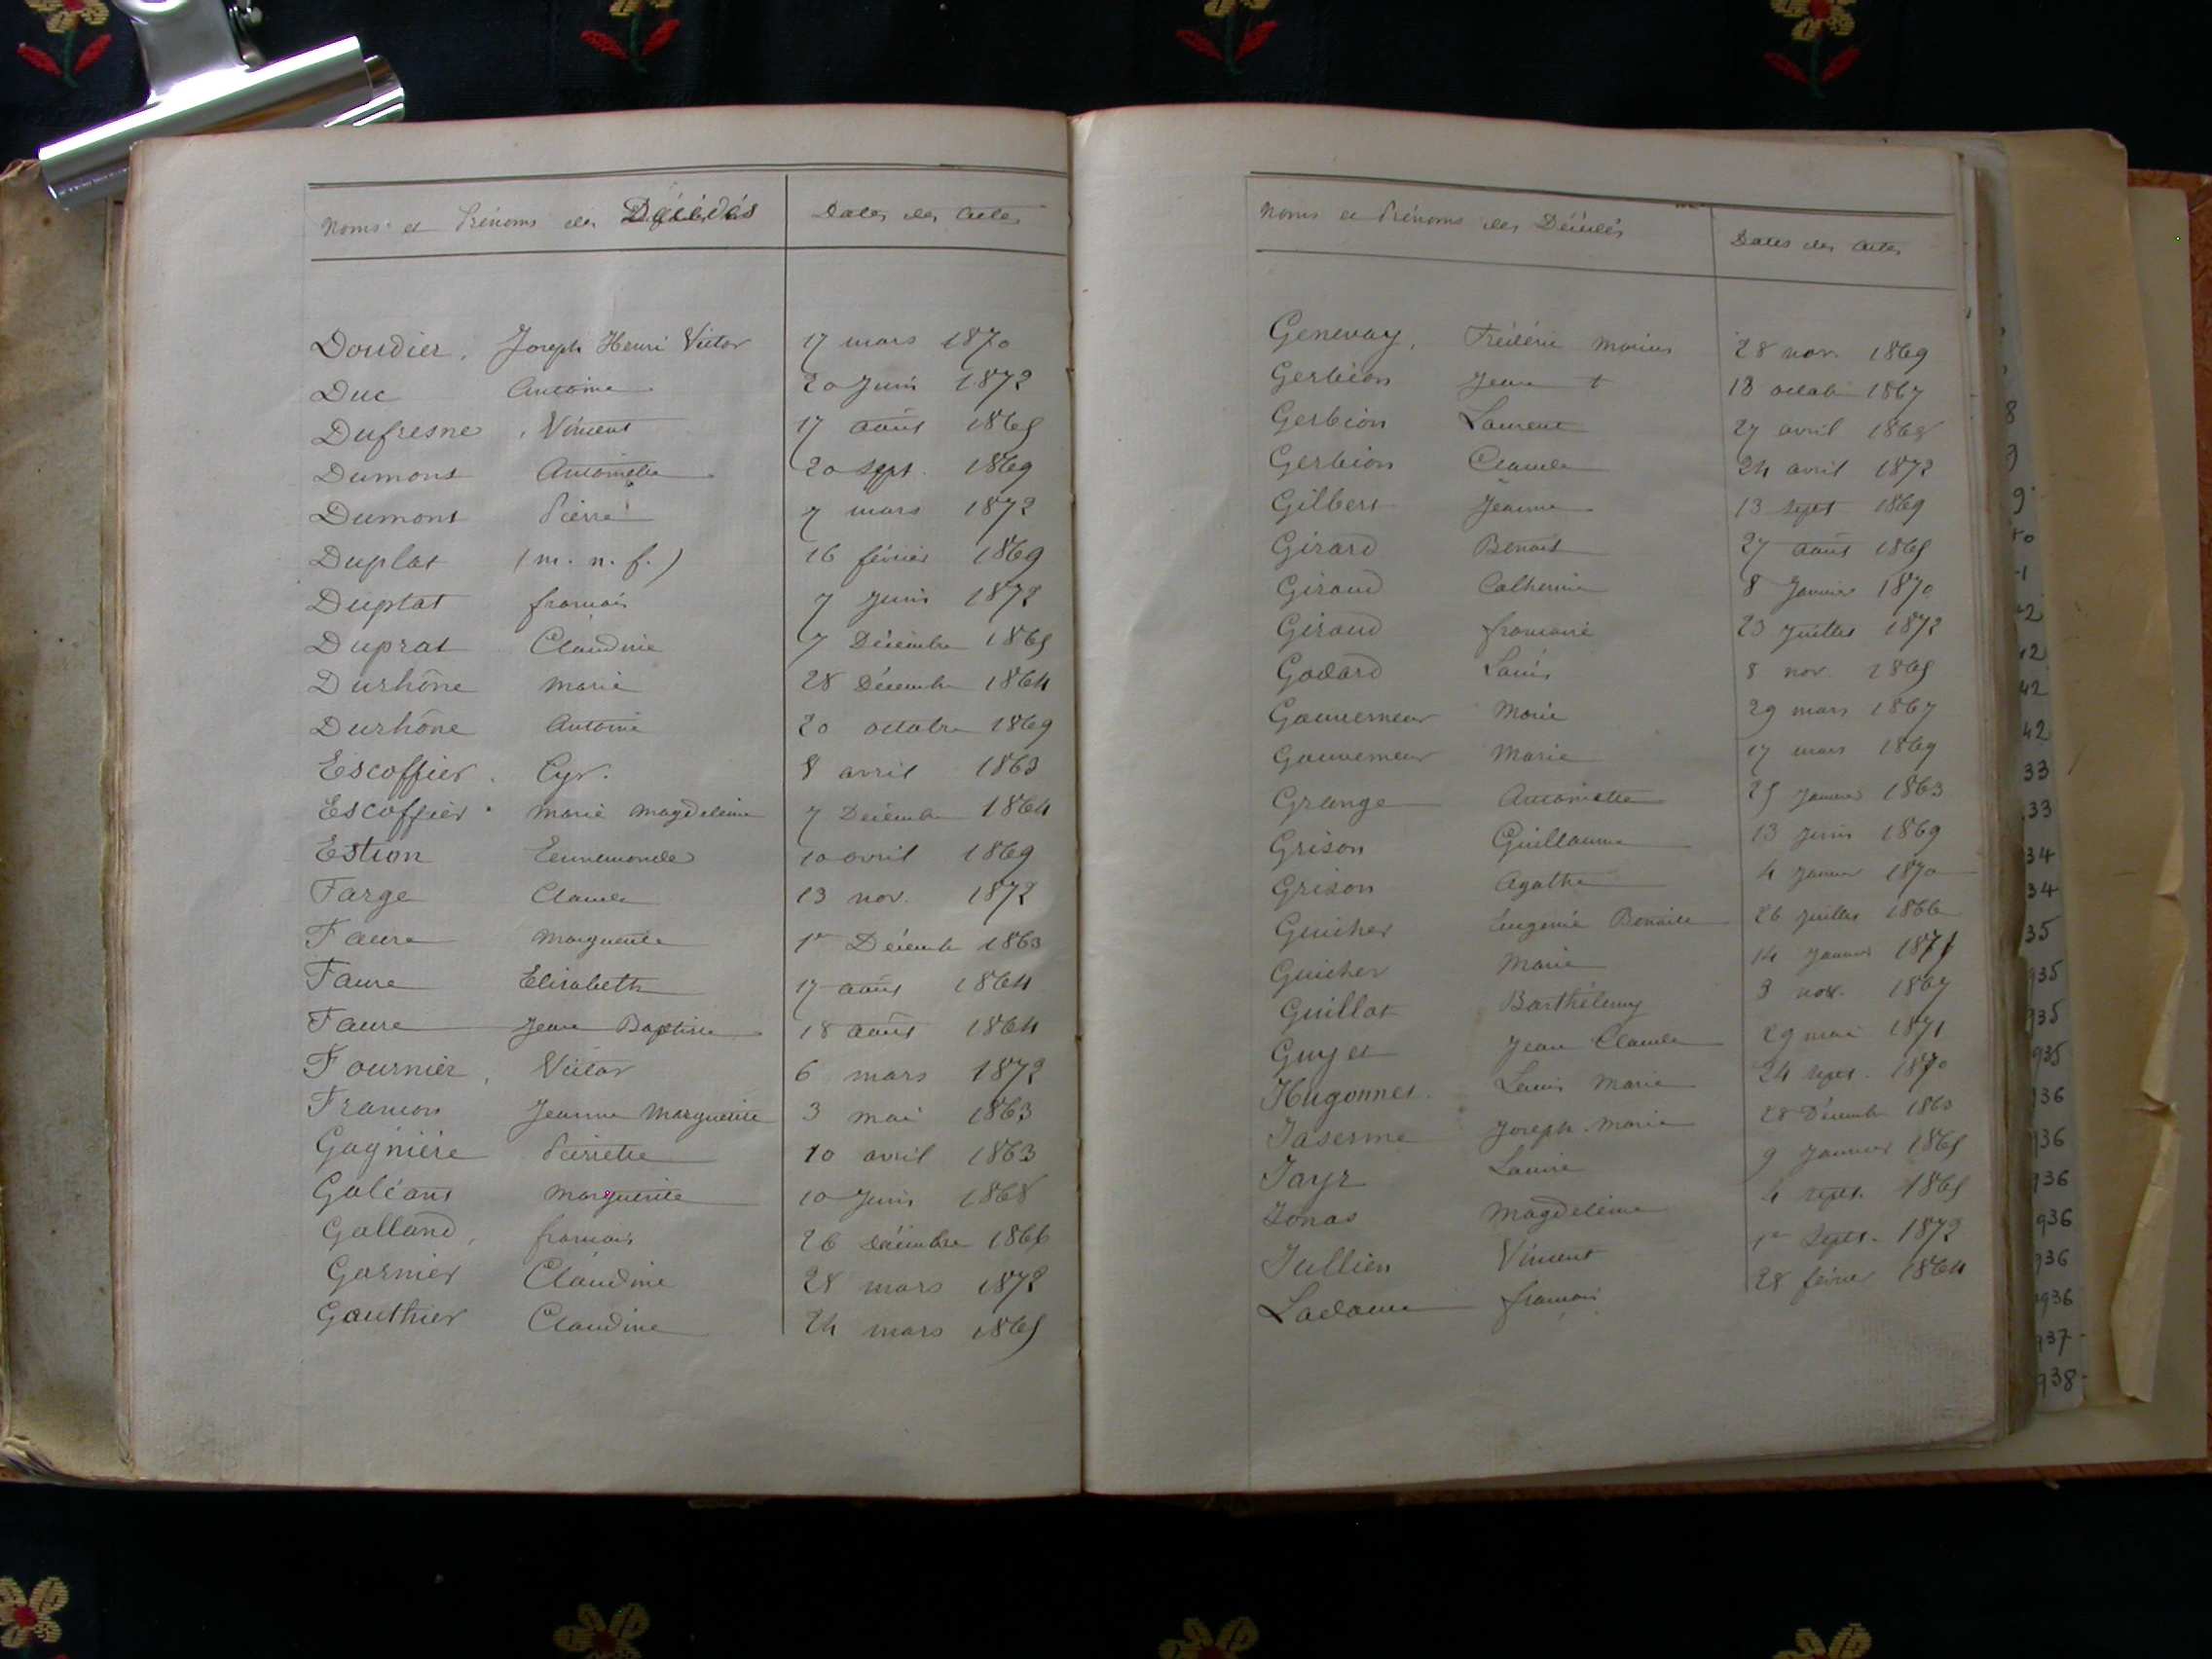 Noms et Prénoms des Décédés Dates des Actes
Doudier, Joseph Henri Victor 17 mars 1870
Duc Antoine 20 Juin 1872
Dufresne, Vincent 17 août 1865
Dumont Antoinette 20 sept. 1869
Dumont Pierre 7 mars 1872
Duplat (m. n. f.) 16 février 1869
Duplat françois 7 Juin 1872
Duprat Claudine 7 Décembre 1865
Durhône Marie 28 Décembre 1864
Durhône Antoine 20 octobre 1869
Escoffier. Cyr. 8 avril 1863
Escoffier. Marie Magdeleine 7 Décembre 1864
Estion Ennemonde 10 avril 1869
Farge Claude 13 nov. 1872
Faure Marguerite 1er Décembre 1863
Faure Elisabeth 17 août 1864
Faure Jean Baptiste 18 août 1864
Fournier, Victor 6 mars 1872
Francon Jeanne Marguerite 3 mai 1863
Gagnière Pierrette 10 avril 1863
Galéans Marguerite 10 Juin 1868
Galland, françois 26 Décembre 1866
Garnier Claudine 28 mars 1872
Gauthier Claudine 24 mars 1865
Noms et Prénoms des Décédés Dates des Actes
Genevay, Frédéric Marius 28 nov. 1869
Gerbion Jean + 13 octob 1867
Gerbion Laurent 27 avril 1868
Gerbion Claude 24 avril 1872
Gilbert Jeanne 13 sept 1869
Girard Benoit 27 août 1865
Giraud Catherine 8 Janvier 1870
Giraud françoise 23 Juillet 1872
Godard Louis 8 nov. 1865
Gouverneur Marie 29 mars 1867
Gouverneur Marie 17 mars 1869
Grange Antoinette 25 Janvier 1863
Grison Guillaume 13 Juin 1869
Grison Agathe 4 Janvier 1870
Guicher Eugénie Benoite 26 Juillet 1866
Guicher Marie 14 Janvier 1871
Guillot Barthélemy 3 nov. 1867
Guyet Jean Claude 29 mai 1871
Hugonnet. Louis Marie 24 sept. 1870
Jaserme Joseph. Marie 28 Décembre 1863
Jayr Louise 9 Janvier 1865
Jonas Magdeleine 4 sept. 1865
Jullien Vincent 1er Sept. 1872
Ladoume françois 28 février 1864
8
9
9
33
33
34
34
35
935
935
935
936
936
936
936
936
936
937
938